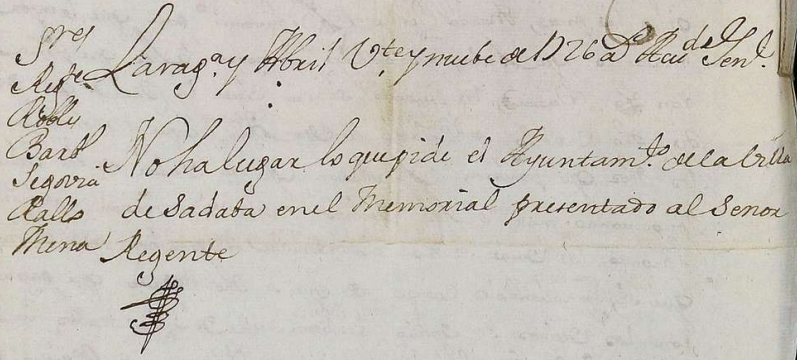 Sres
Regte
Robles
Barl
Segovia
Rallo
Mena
Zaragza y Abril Vte y nuebe de 1726 as Acdo Genl
No ha lugar lo que pide el Ayuntamto de la Villa
de Sadaba en el Memorial presentado al Senor
Regente